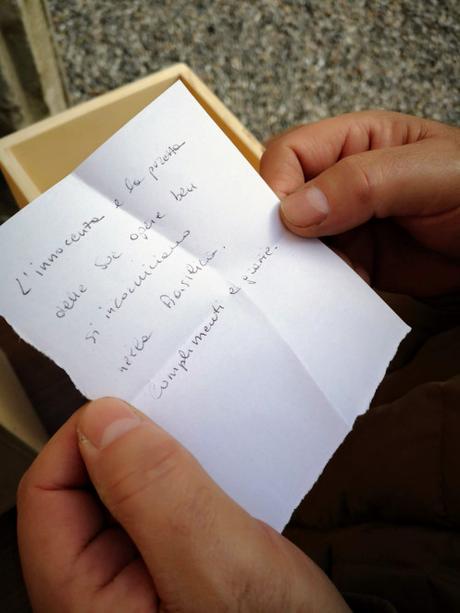 L'innocenza e la purezza
delle Sue opere ben
si incorniciano
nella Basilica.
Complimenti e grazie.